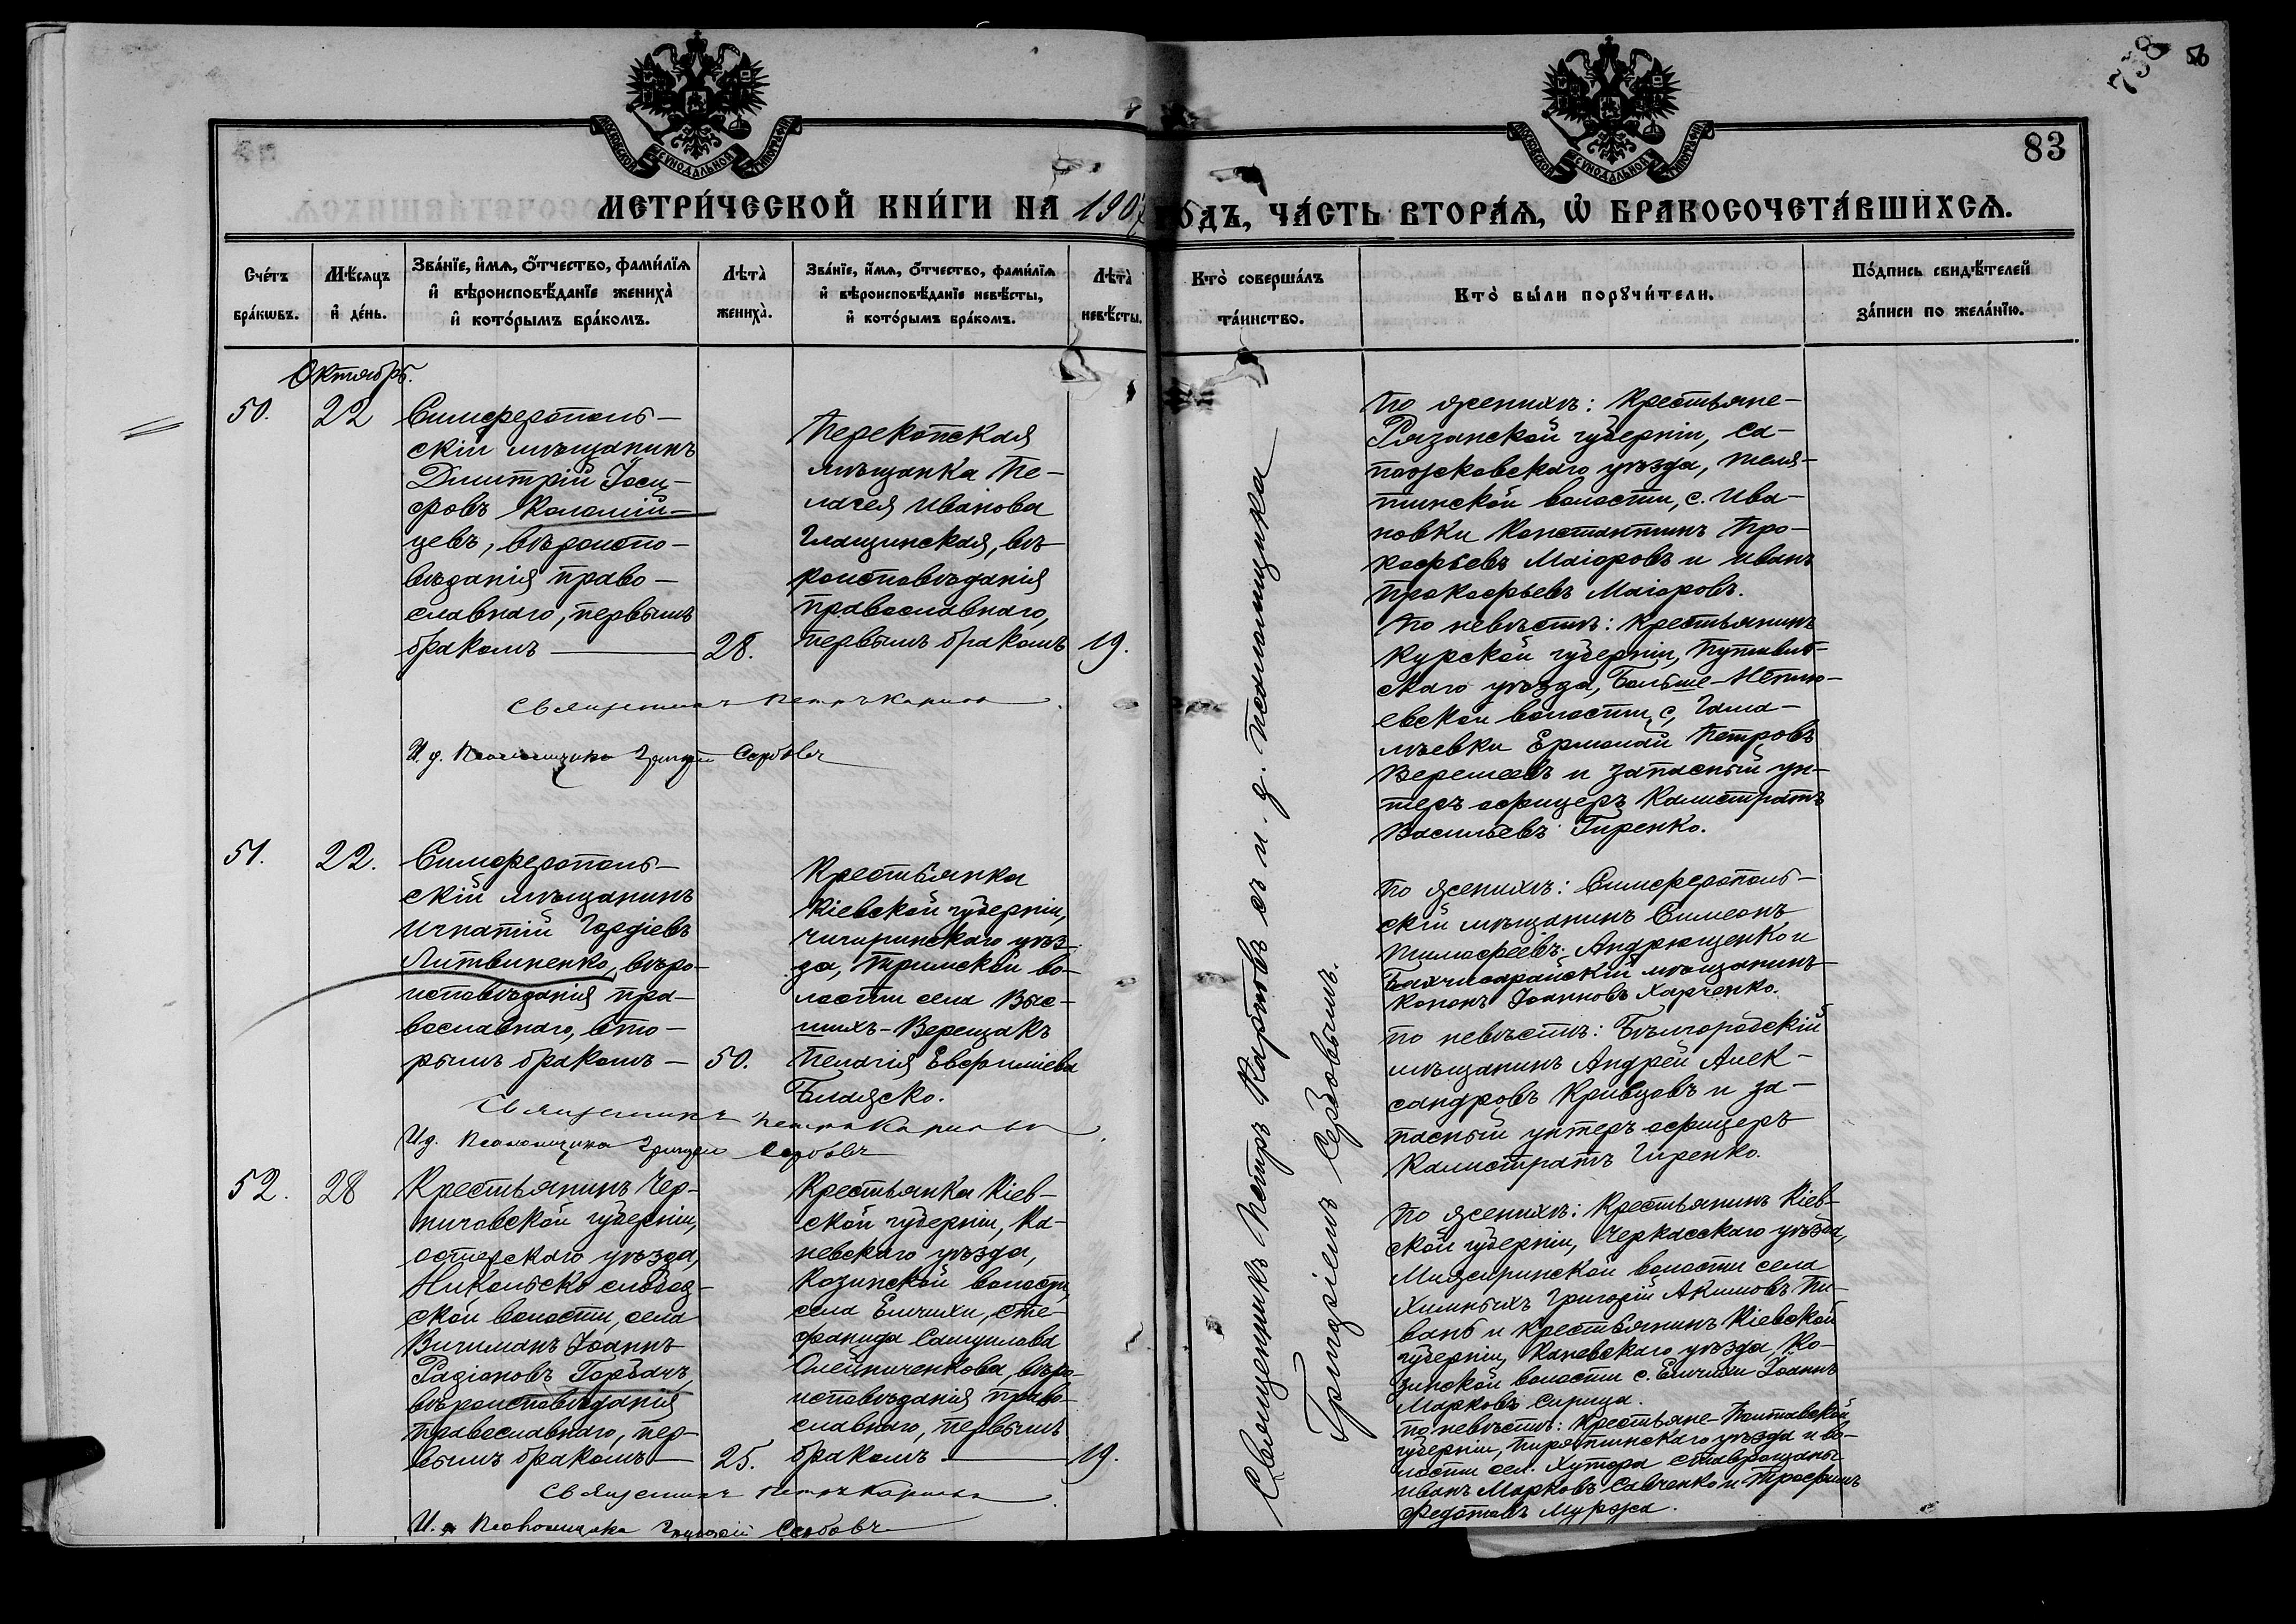 738
83
МОСКОВСКОЙ СѴНОДАЛЬНОЙ ТИПОГРАФІИ
МОСКОВСКОЙ СѴНОДАЛЬНОЙ ТИПОГРАФІИ
МЕТРИ́ЧЕСКОЙ КНИ́ГИ НА 1907 ГОДЪ, ЧА́СТЬ ВТОРА́Ѧ, Ѽ БРАКОСОЧЕТА́ВШИХСѦ.
Сче́тъ
бра́кѡвъ.
Мѣ́сяцъ
и҆ де́нь.
Зва́нїе, и҆́мѧ, ѻ҆́тчество, фами́лїѧ
и҆ вѣроисповѣ́данїе жениха̀
и҆ кото́рымъ бра́комъ.
Лѣта̀
жениха̀.
Зва́нїе, и҆́мѧ, ѻ҆́тчество, фами́лїѧ
и҆ вѣроисповѣ́данїе невѣ́сты,
и҆ кото́рымъ бра́комъ.
Лѣта̀
невѣ́сты.
Кто̀ соверша́лъ
та́инство.
Кто̀ бы́ли порꙋчи́тели.
По́дпись свидѣ́телей
за́писи по жела́нїю.
Октябрь.
50.
22
Симферополь-
скій мѣщанинъ
Димитрій Іоси-
фовъ Коломій-
цевъ, вѣроиспо-
вѣданія право-
славнаго, первымъ
бракомъ
28.
Перекопская
мѣщанка Пе-
лагея Иванова
Глащинская, вѣ-
роисповѣданія
православнаго,
первымъ бракомъ
19.
Священникъ Петръ Карповъ
И. д. Псаломщика Григорій Сербовъ
По женихѣ: Крестьяне-
Рязанской губерніи, Са-
пожковскаго уѣзда,
волости, с. Ива-
новки Константинъ Про-
кофьевъ Маіоровъ и Иванъ
Прокофьевъ Маіоровъ.
По невѣстѣ: крестьянинъ
Курской губерніи, Путивль-
скаго уѣзда, Больше-Неплю-
евской волости, с. Гама-
лѣевки Ермолай Петровъ
и запасный ун-
теръ офицеръ Калистратъ
Васильевъ Гиренко.
51.
22.
Симферополь-
скій мѣщанинъ
Игнатій Гордіевъ
Литвиненко, вѣро-
исповѣданія пра-
вославнаго, вто-
рымъ бракомъ
50.
Крестьянка
Кіевской губерніи,
Чигиринскаго уѣз-
да, во-
лости села Выс-
шихъ-Верещакъ
Пелагія Евфиміева
Блажко.
Священникъ Петръ Карповъ
И. д. Псаломщика Григорій Сербовъ
По женихѣ: Симферополь-
скій мѣщанинъ Симеонъ
Тимофеевъ Андрющенко и
Бахчисарайскій мѣщанинъ
Кононъ Іоанновъ Харченко.
По невѣстѣ: Бѣлгородскій
мѣщанинъ Андрей Алек-
сандровъ Кривцовъ и за-
пасный унтеръ офицеръ
Калистратъ Гиренко.
52.
28
Крестьянинъ Чер-
ниговской губерніи,
Остерскаго уѣзда,
Никольско слобод-
ской волости, села
Вигимань Іоаннъ
Радіоновъ Горбачъ,
вѣроисповѣданія
православнаго, пер-
вымъ бракомъ
25.
Крестьянка Кіев-
ской губерніи, Ка-
невскаго уѣзда,
Козинской волости,
села Емчихи, Сте-
фанида Самуилова
Олейниченкова, вѣро-
исповѣданія право-
славнаго, первымъ
бракомъ
19.
Священникъ Петръ Карповъ
И. д. Псаломщика Григорій Сербовъ
По женихѣ: Крестьянинъ Кіев-
ской губерніи, Черкасскаго уѣзда,
волости села
Григорій Акимовъ Пи-
вань и крестьянинъ Кіевской
губерніи, Каневскаго уѣзда, Ко-
зинской волости с. Емчихи Іоаннъ
Марковъ
По невѣстѣ: Крестьяне Полтавской
губерніи, Пирятинскаго уѣзда и во-
лости сел. Хутора
Иванъ Марковъ Савченко и Трофимъ
Федотовъ
Священникъ Петръ Карповъ съ и. д. псаломщика
Григоріемъ Сербовымъ.